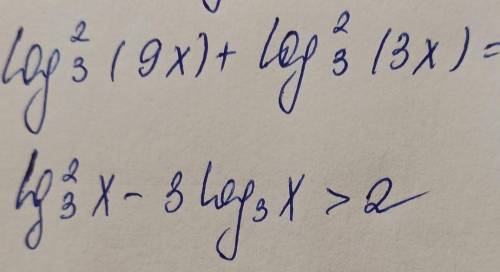 log₃²(9x) + log₃²(3x) =
lg₃²x - 3log₃x > 2